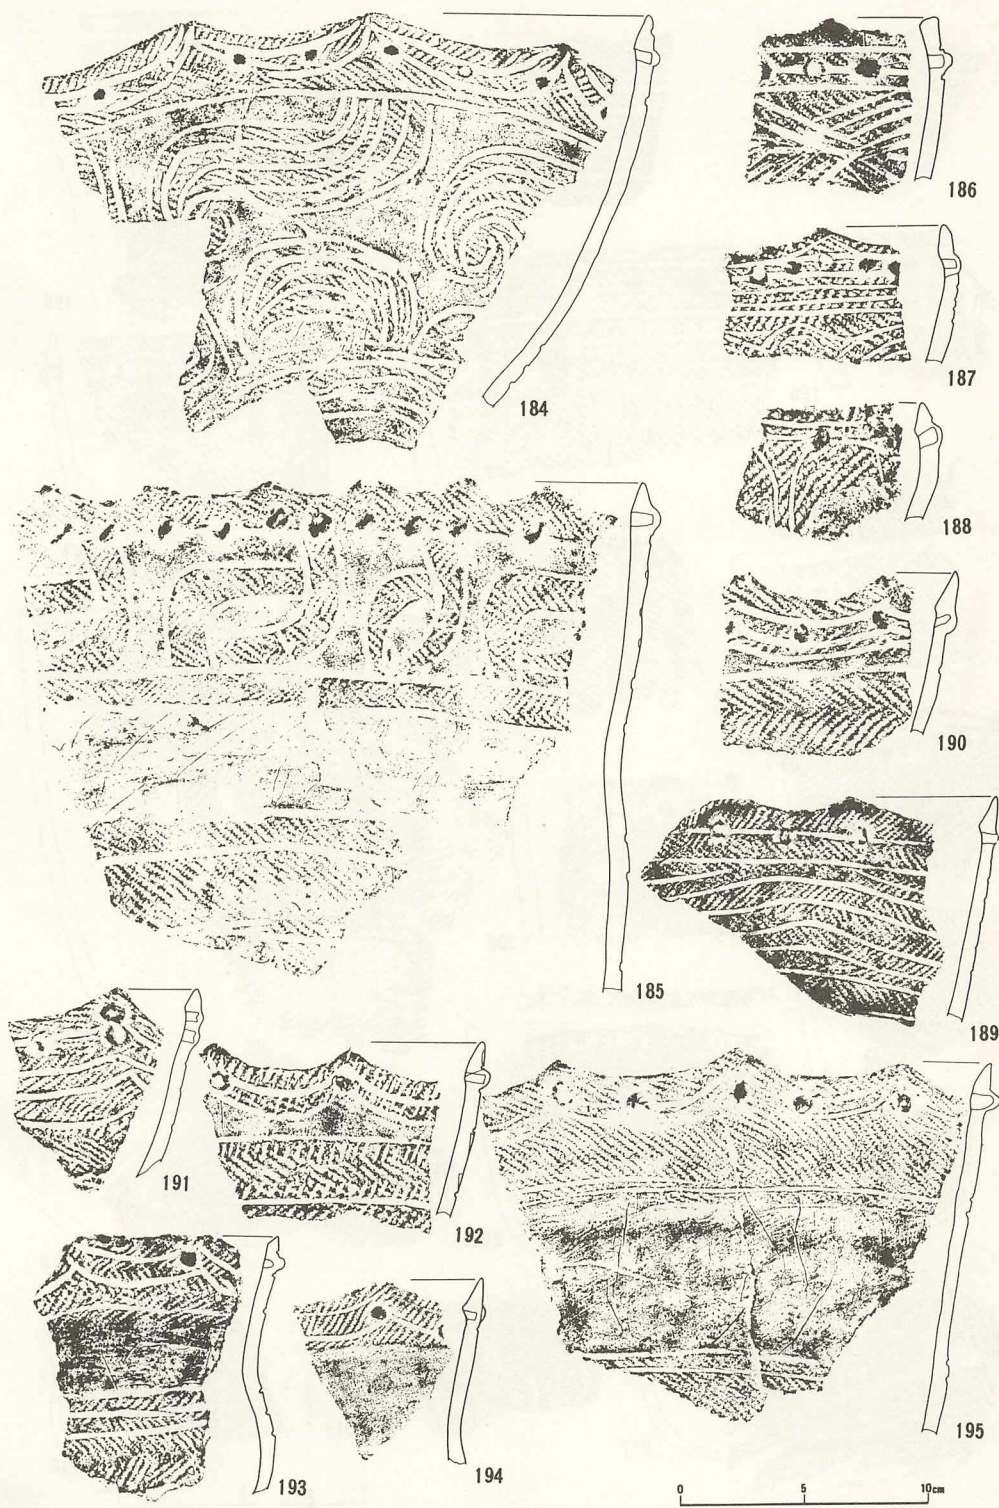 184
186
187
188
185
190
189
191
192
193
194
195
0 5 10cm